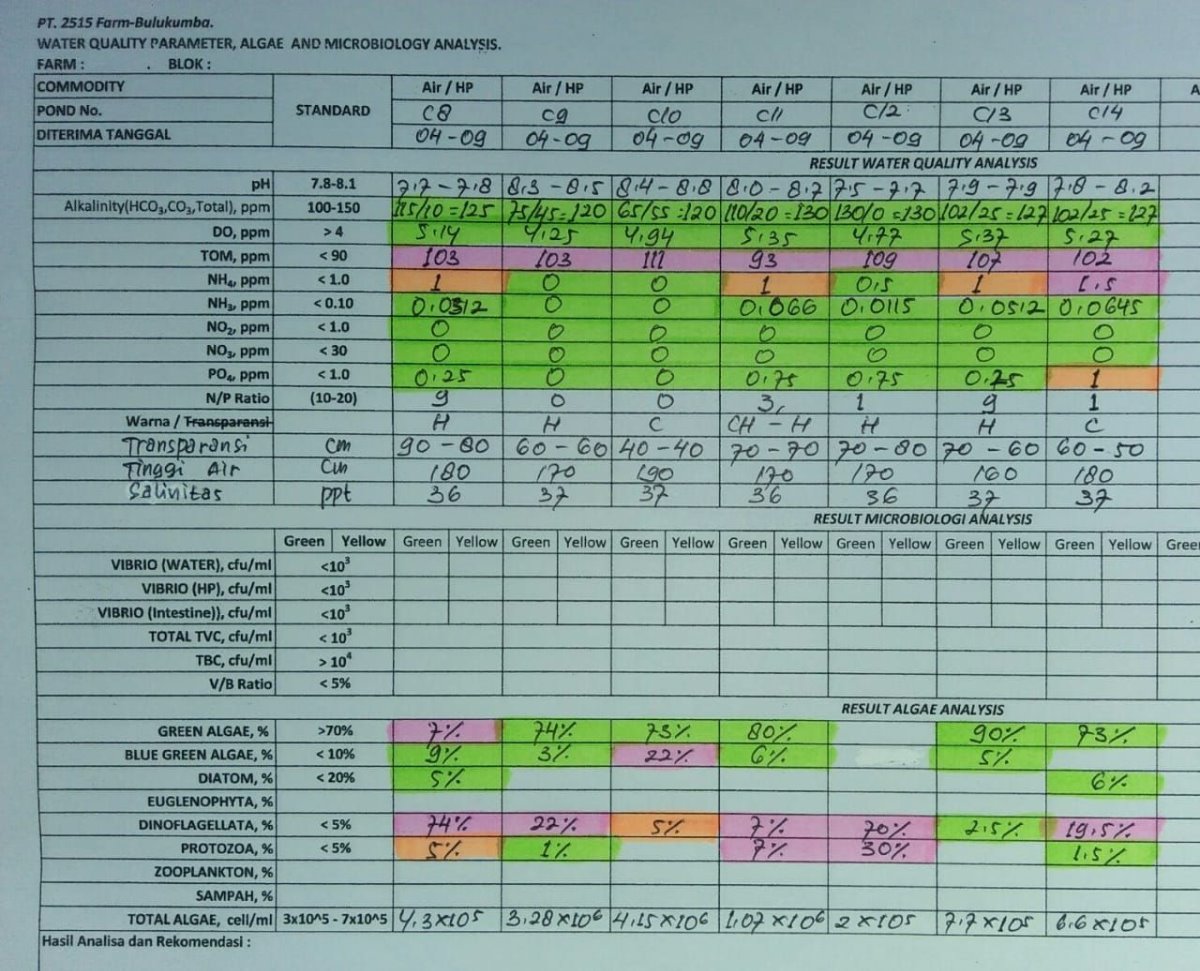 PT. 2515 Farm-Bulukumba.
WATER QUALITY PARAMETER, ALGAE AND MICROBIOLOGY ANALYSIS.
FARM : . BLOK :
COMMODITY STANDARD Air / HP Air / HP Air / HP Air / HP Air / HP Air / HP Air / HP A
POND No. C8 C9 C10 C11 C12 C13 C14
DITERIMA TANGGAL 04-09 04-09 04-09 04-09 04-09 04-09 04-09
RESULT WATER QUALITY ANALYSIS
pH 7.8-8.1 7.7 - 7.8 8.3 - 8.5 8.4 - 8.8 8.0 - 8.7 7.5 - 7.7 7.9 - 7.9 7.8 - 8.2
Alkalinity(HCO₃,CO₃,Total), ppm 100-150 115/10 = 125 75/45 = 120 65/55 = 120 110/20 = 130 130/0 = 130 102/25 = 127 102/25 = 127
DO, ppm > 4 5.14 4.25 4.94 5.35 4.77 5.37 5.27
TOM, ppm < 90 103 103 111 93 109 107 102
NH₄, ppm < 1.0 1 0 0 1 0,5 1 1,5
NH₃, ppm < 0.10 0,0312 0 0 0,066 0,0115 0,0512 0,0645
NO₂, ppm < 1.0 0 0 0 0 0 0 0
NO₃, ppm < 30 0 0 0 0 0 0 0
PO₄, ppm < 1.0 0,25 0 0 0,75 0,75 0,25 1
N/P Ratio (10-20) 9 0 0 3, 1 9 1
Warna / Transparansi H H C CH - H H H C
Transparansi Cm 90 - 80 60 - 60 40 - 40 70 - 70 70 - 80 70 - 60 60 - 50
Tinggi Air Cm 180 170 190 170 170 160 180
Salinitas ppt 36 37 37 36 36 37 37
RESULT MICROBIOLOGI ANALYSIS
Green Yellow Green Yellow Green Yellow Green Yellow Green Yellow Green Yellow Green Yellow Green Yellow Green
VIBRIO (WATER), cfu/ml <10³
VIBRIO (HP), cfu/ml <10³
VIBRIO (Intestine)), cfu/ml <10³
TOTAL TVC, cfu/ml < 10³
TBC, cfu/ml > 10⁴
V/B Ratio < 5%
RESULT ALGAE ANALYSIS
GREEN ALGAE, % >70% 7% 74% 73% 80% 90% 73%
BLUE GREEN ALGAE, % < 10% 9% 3% 22% 6% 5%
DIATOM, % < 20% 5% 6%
EUGLENOPHYTA, %
DINOFLAGELLATA, % < 5% 74% 22% 5% 7% 70% 2.5% 19,5%
PROTOZOA, % < 5% 5% 1% 7% 30% 1.5%
ZOOPLANKTON, %
SAMPAH, %
TOTAL ALGAE, cell/ml 3x10^5 - 7x10^5 4,3x10⁵ 3,28x10⁶ 4,15x10⁶ 1,07x10⁶ 2x10⁵ 7,7x10⁵ 6.6x10⁵
Hasil Analisa dan Rekomendasi :